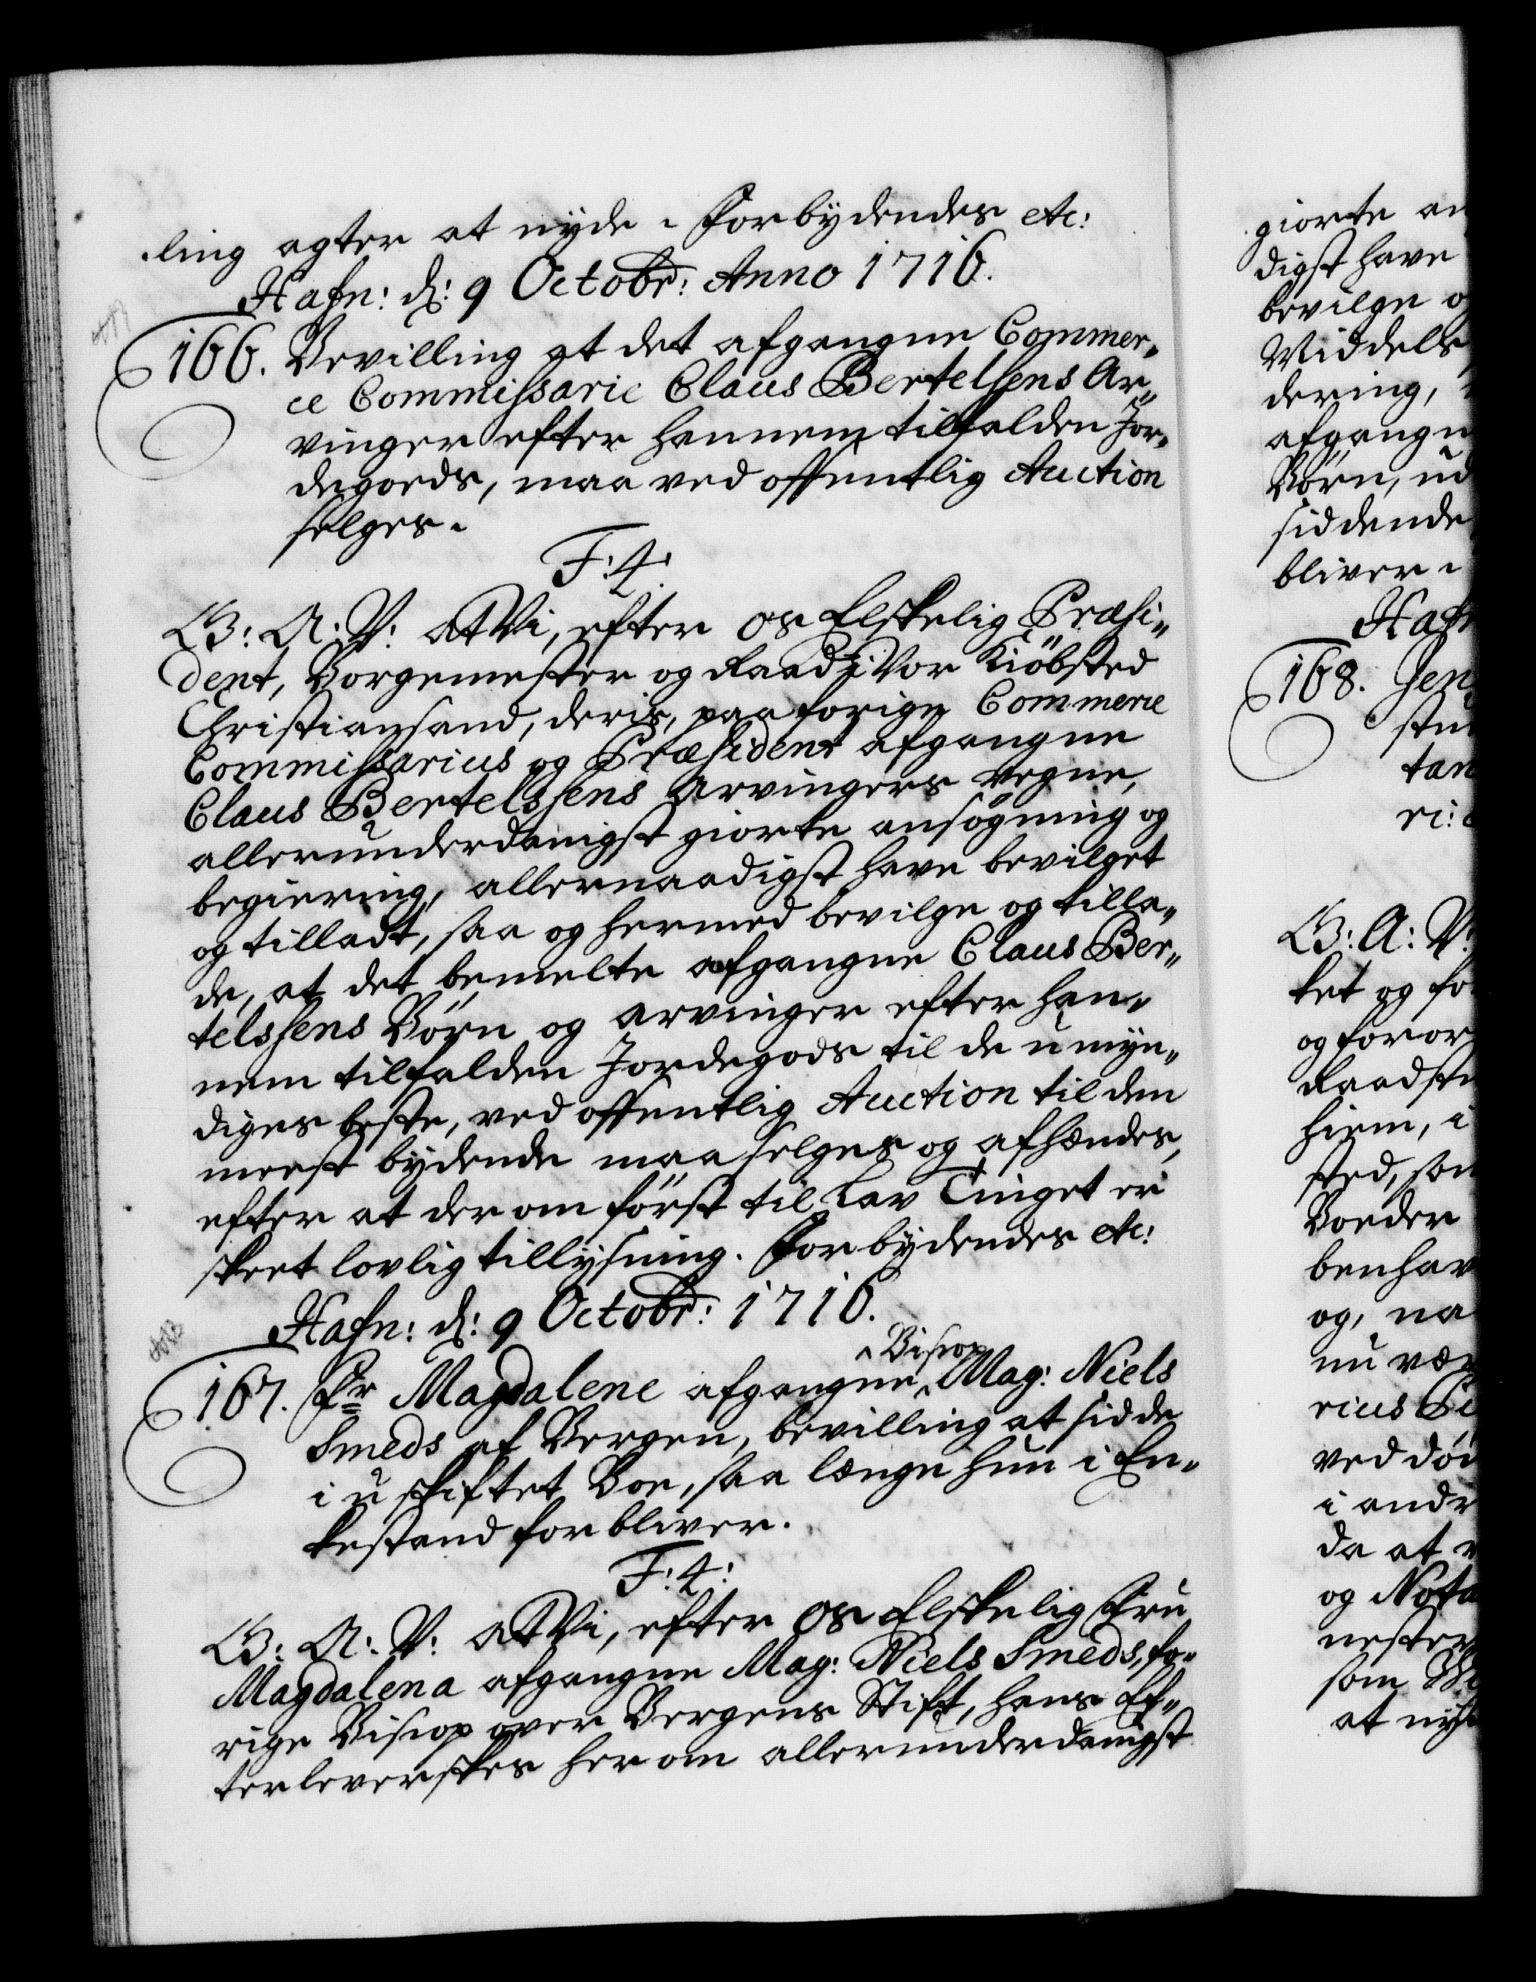 ling agter at nÿde. Forbÿdendes etc:
Hafn: d: 9 Octobr: Anno 1716.
166. Bevilling at det afgangne Commer„
ce Commissarie Claus Bertelsens Ar„
vinger efter hannem tilfalden Jor„
degoeds, maa ved offentlig Auction
selges.
F: 4:
G: A: V: At Vi, efter os Elskelig Præsi„
dent, Borgemester og Raad i Vor Kiöbsted
Christiansand, deris, paa forige Commerce
Commissarius og Præsident afgangne
Claus Bertelssens Arvingers vegne,
allerunderdanigst giorte ansögning og
begiering, allernaadigst have bevilget
og tilladt, saa og hermed bevilge og tilla„
de, at det bemelte afgangne Claus Ber„
telssens Börn og arvinger efter han„
nem tilfalden Jordegods til de umÿn„
diges beste, ved offentlig Auction til den
meest bÿdende maa selges og afhændes,
efter at der om först til Lav Tinget er
skeet lovlig tillÿsning. Forbÿdendes etc:
Hafn: d: 9 Octobr: 1716.
167. Fr Magdalene afgangne Biscop Mag: Niels
Smeds af Bergen, bevilling at sidde
i u skiftet Boe, saa længe hun i En„
kestand forbliver.
F: 4:
G: A: V: At Vi, efter os Elskelig Fru
Magdalena afgangne Mag: Niels Smeds, fo„
rige Biscop over Bergens Stift, hans Ef„
terleverskes her om allerunderdanigst
giorte an
digst have
bevilge o
Middels
dering,
afgangn
Börn, ud
siddende
bliver.
Hafn
168. Jen
stu
tan
ri:
G: A: V:
ket og fo
og foror
Raadst
hiem, i
sted, som
Boeder
benhav
og, na
nu vær
rius Pe
ved död
i andr
da at
og Nota
nester
som
at nÿ